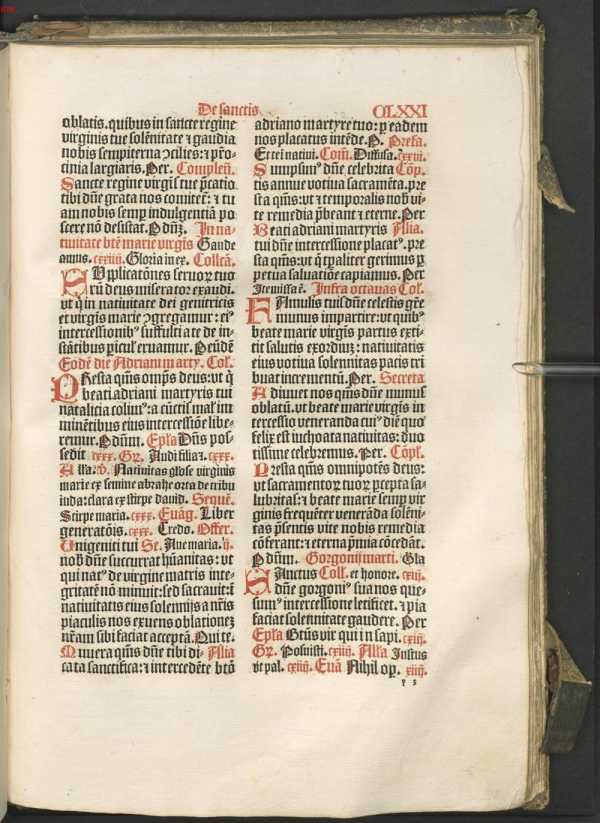 De sanctis CLXXI
oblatis. quibus in sancte regine
virginis tue solēnitate ⁊ gaudia
nobis sempiterna ꝯcilies: ⁊ p̄ro-
cinia largiaris. Per. Complen̄.
Sancte regine virgīs tue p̄catio
tibi dn̄e grata nos comitet̄: ⁊ tu
am nobis semꝑ indulgentiā po
scere nō desistat. P dn̄ꝫ. In na-
tiuitate btē marie virgīs Gaude
amus. Gloria in ex. Collec̄a.
SUpplicatōnes seruoꝝ tuo
rū deus miserator exaudi.
vt q̄ in natiuitate dei genitricis
et virgīs marie ꝯgregamur: eiꝰ
intercessionibꝰ suffulti a te de in-
stātibus ꝑicuꝉ eruamur. P eūdē
Eodē die Adriani marty. Col.
PResta qs̄ms omp̄s deus: vt q̄
beati adriani martyris tui
natalicia colimꝰ: a cūctis maꝉ im
minētibus eius intercessiōe libe-
remur. P dn̄m. Epl̄a Dn̄s pos-
sedit cxxx. Gꝝ. Audi filia ⁊. cxxx.
Alla. v̄. Natiuitas gl̄ose virginis
marie ex semine abrahe orta de tribu
iuda: clara ex stirpe dauid. Sequē.
Stirpe maria. cxxx. Euāg. Liber
generatōis. cxxx. Credo. Offer.
Unigeniti tui Se. Aue maria. ij.
nob̄ dn̄e succurrat hūanitas: vt
qui natꝰ de virgine matris inte-
gritatē nō minuit: sed sacrauit: ī
natiuitatis eius solennijs a nr̄is
piaculis nos exuens oblationeꝫ
nr̄am sibi faciat acceptā. Qui te.
Munera qs̄ms dn̄e tibi di- Allia
cata sanctifica: ⁊ intercedēte btō
adriano martyre tuo: ꝑ eadem
nos placatus intēde. P. Prefa.
Et te ī natiui. Com̄. Diffusa. cxxvi.
Sumpsimꝰ dn̄e celebrita Cōp.
tis annue votiua sacramēta. pre
sta qs̄ms: vt ⁊ temporalis nob̄ vi-
te remedia p̄beant ⁊ eterne. Per
Beati adriani martyris Allia.
tui dn̄e intercessione placatꝰ. pre
sta qs̄ms: vt q̄ tp̄aliter gerimus ꝑ
petua saluatiōe capiamus. Per
Ite missa ē. Infra octauas Col.
FAmulis tuis dn̄e celestis gr̄e
munus impartire: vt quibꝰ
beate marie virgīs partus exti-
tit salutis exordiuꝫ: natiuitatis
eius votiua solennitas pacis tri
buat incrementū. Per. Secreta
Adiuuet nos qs̄ms dn̄e munus
oblatū. vt beate marie virgīs in
tercessio veneranda cuiꝰ diē quo
felix est inchoata natiuitas: deuo
tissime celebremus. Per. Cōpl.
Presta qs̄ms omnipotēs deus:
vt sacramentoꝝ tuoꝝ ꝑcepta sa-
lubritas: ⁊ beate marie semꝑ vir
ginis frequēter venerāda solēni-
tas p̄sentis vite nobis remedia
cōferant: ⁊ eterna p̄mia cōcedāt.
P dn̄um. Gorgonij marti. Gla
SAnctus Coll. et honore. cxiij.
dn̄e gorgoniꝰ sua nos que-
sumꝰ intercessione letificet. ⁊ pia
faciat solennitate gaudere. Per
Epl̄a Btūs vir qui in sapi. cxiij.
Gꝝ. Posuisti. cxiiij. Alla Iustus
vt pal. cxiiij. Euā Nihil op. xiiij.